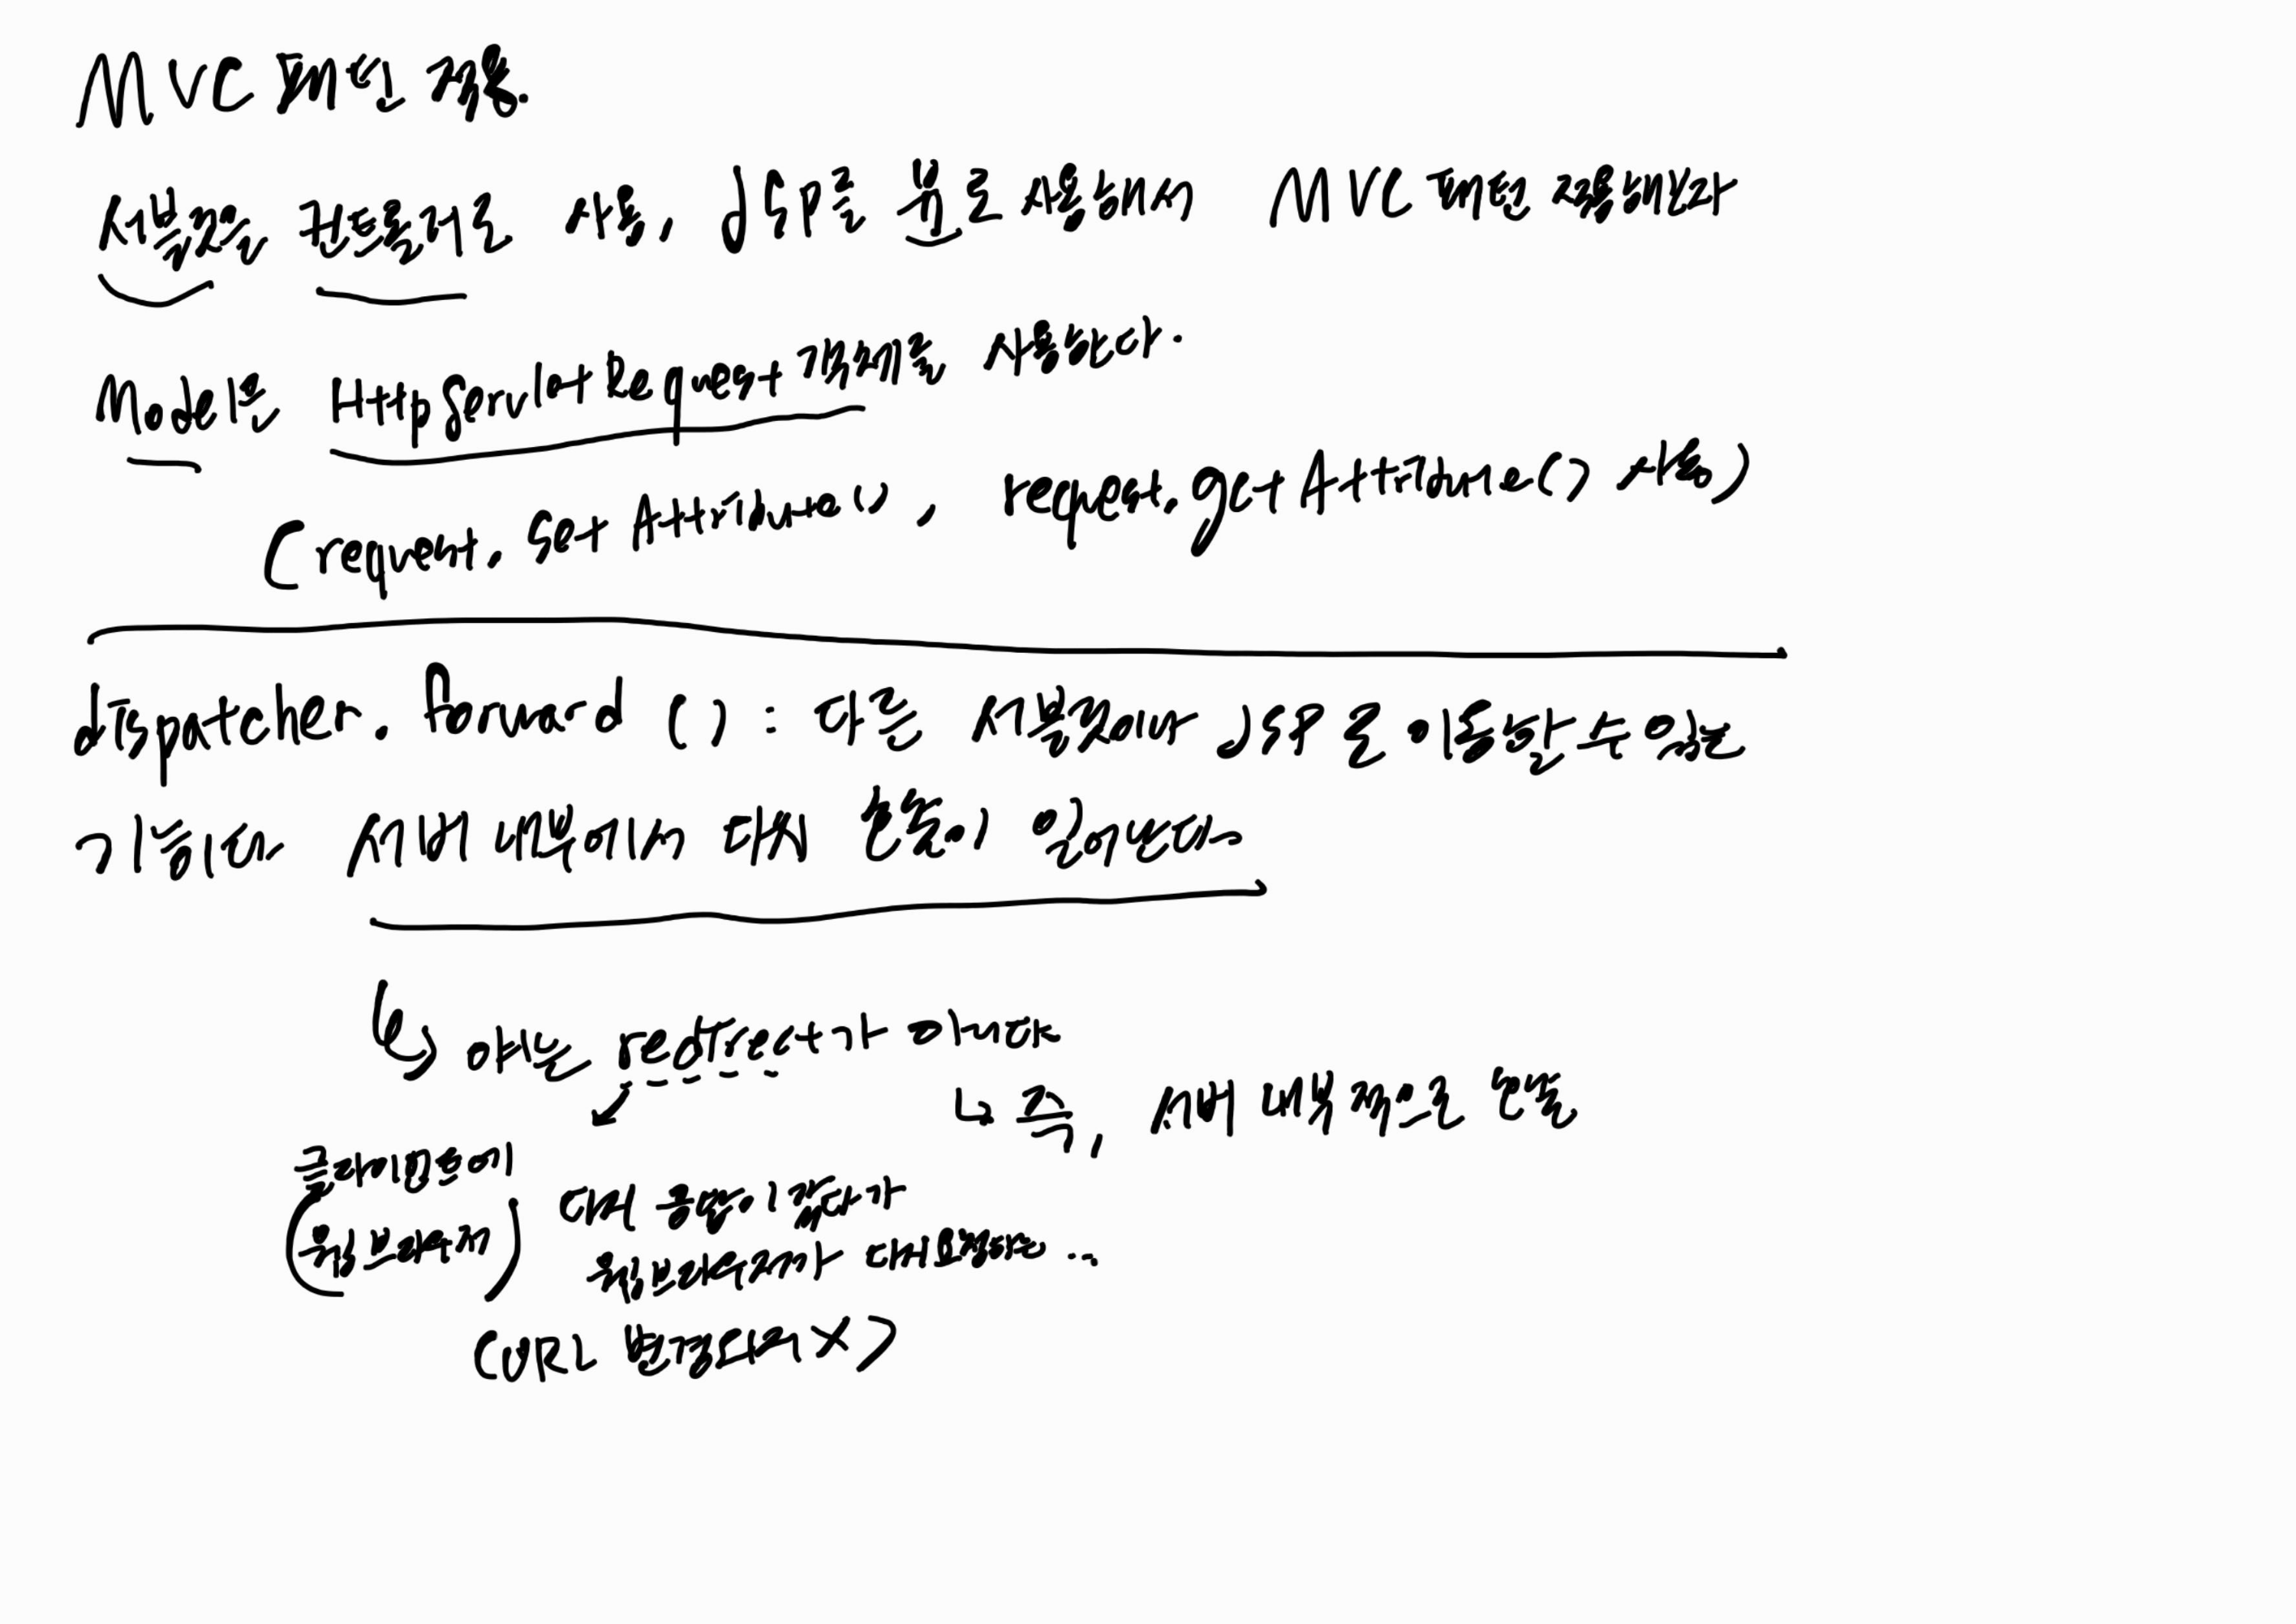 MVC 패턴 적용.
서블릿을 컨트롤러로 사용, JSP를 뷰로 사용해서 MVC 패턴 적용해보자
Model은 HttpServletRequest 객체를 사용한다.
(request.setAttribute(), request.getAttribute() 사용)
dispatcher.forward() : 다른 서블릿이나 JSP로 이동할 수 있는
기능이다 서버 내부에서 다시 호출이 일어난다
↳ 얘는 redirect가 아니다
↳ 즉, 서버 내부적으로 호출
클라이언트에
(웹브라우저) 다시 응답이 갔다가
웹브라우저가 다시 요청하는..
(URL 변경되지 X)